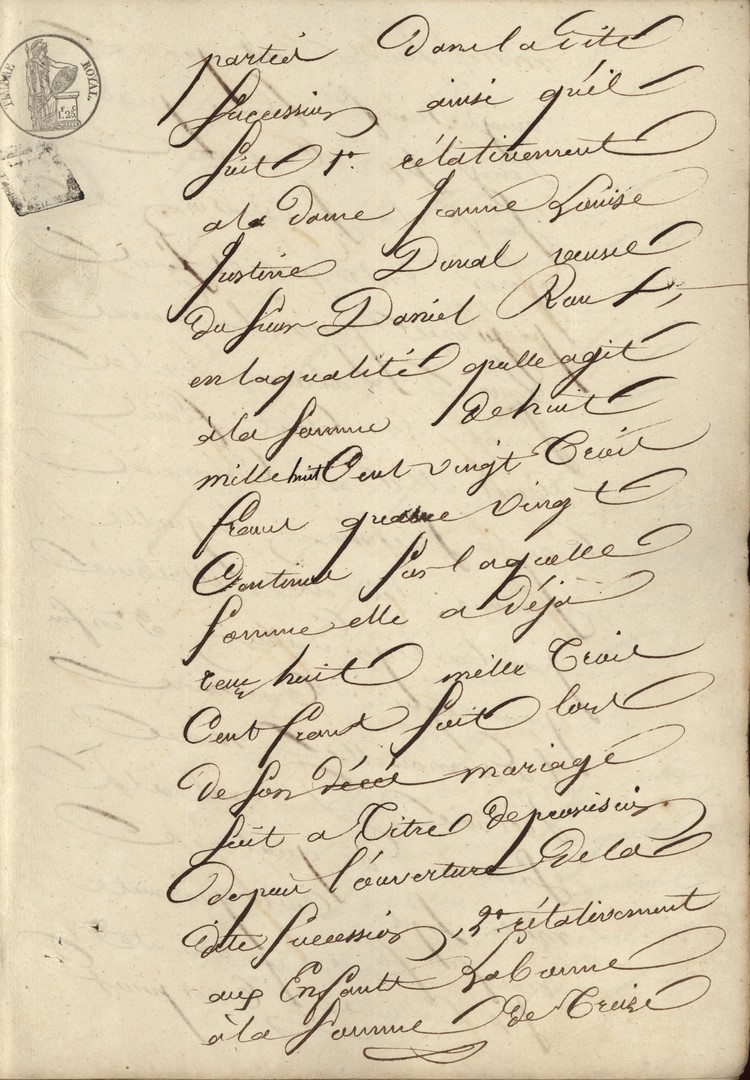 TIMBRE ROYAL.
1F. 25C
partié dans la dite
succession ainsi qu'il
suit 1º. rélativement
a la dame Jeanne Louise
Justine Donal veuve
du sieur Daniel Rau
en la qualité qu'elle agit
à la somme de huit
mille huit Cent vingt Trois
francs quatre vingt
Centimes sur laquelle
somme elle a déjà
reçu huit mille Trois
Cent francs soit lors
de son décés mariage
soit a Titre de provision
depuis l'ouverture de la
dite succession, 2º rélativement
aux Enfants Labanne
à la somme de Treize